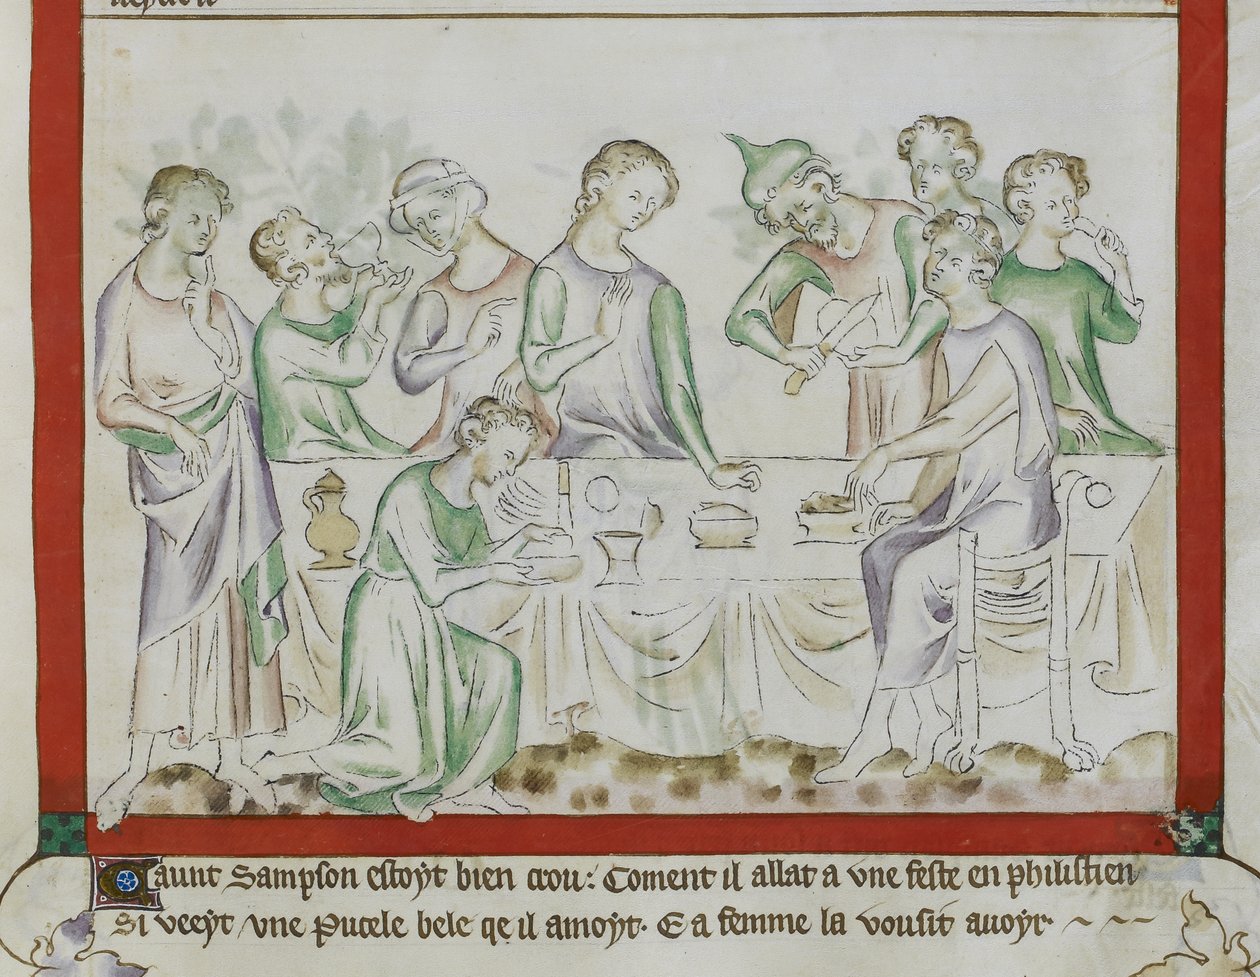 Qaunt Sampson estoyt bien crou: Coment il allat a vne feste en philistien
Si veeyt vne Pucele bele qe il amoyt. E a femme la vousit auoyr.